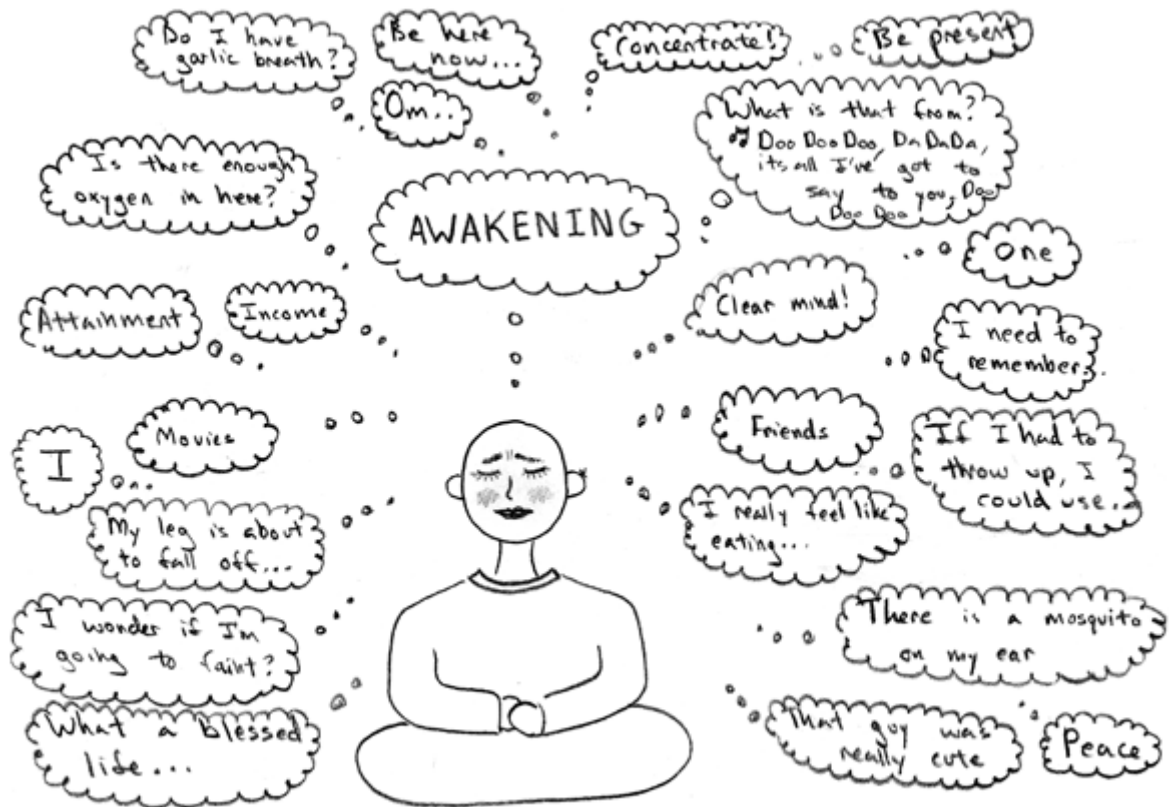 Do I have
garlic breath?
Be here
now...
Concentrate!
Be present
Om..
What is that from?
♫ Doo Doo Doo, Da Da Da,
its all I've' got to
say to you, Doo
Doo Doo
Is there enough
oxygen in here?
AWAKENING
One
Clear mind!
Attainment
Income
I need to
remember..
Movies
Friends
I
If I had to
throw up, I
could use..
My leg is about
to fall off...
I really feel like
eating...
I wonder if I'm
going to faint?
There is a mosquito
on my ear
What a blessed
life...
That guy was
really cute
Peace